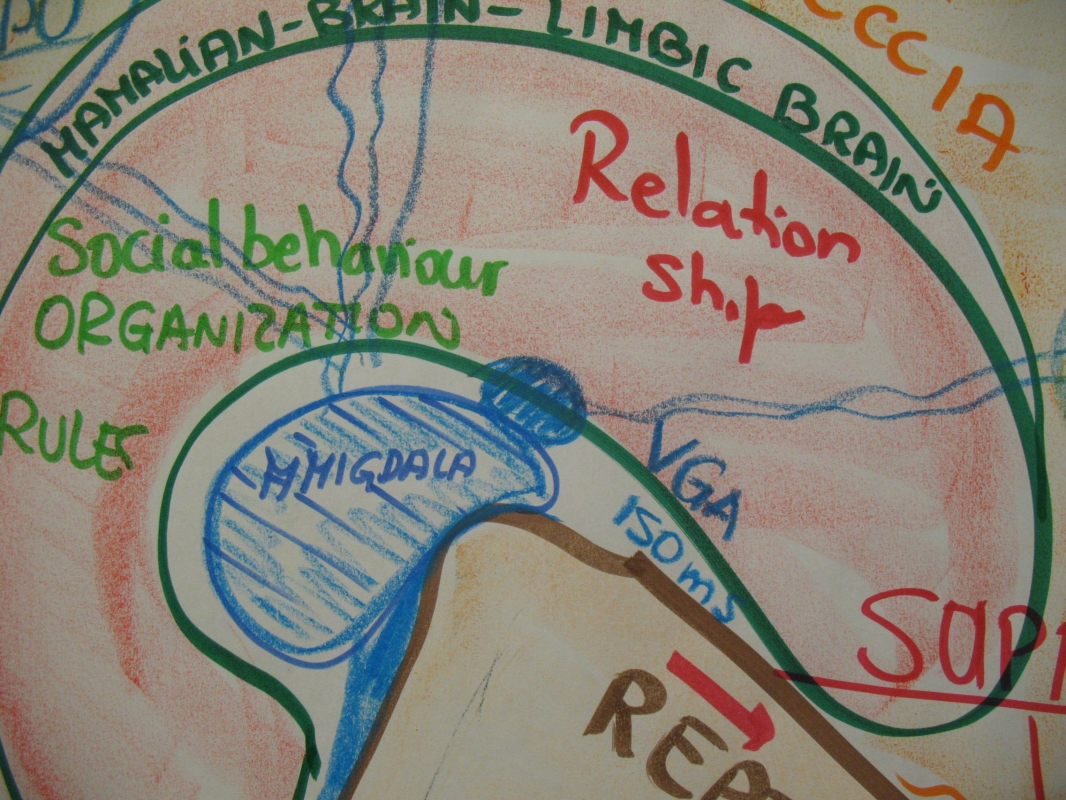 MAMALIAN-BRAIN-LIMBIC BRAIN
CCIA
Relation
ship
Social behaviour
ORGANIZATION
RULES
AMIGDALA
VGA
150 ms
SUPP
REP